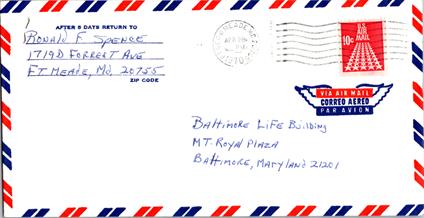 AFTER 5 DAYS RETURN TO
RONALD F SPENCE
1719D FORREST AVE
FT. MEADE, Md 20755
ZIP CODE
U.S.
AIR MAIL
10c
VIA AIR MAIL
CORREO AEREO
PAR AVION
BALTIMORE LIFE BUILDING
MT. ROYAL PLAZA
BALTIMORE, MARYLAND 21201